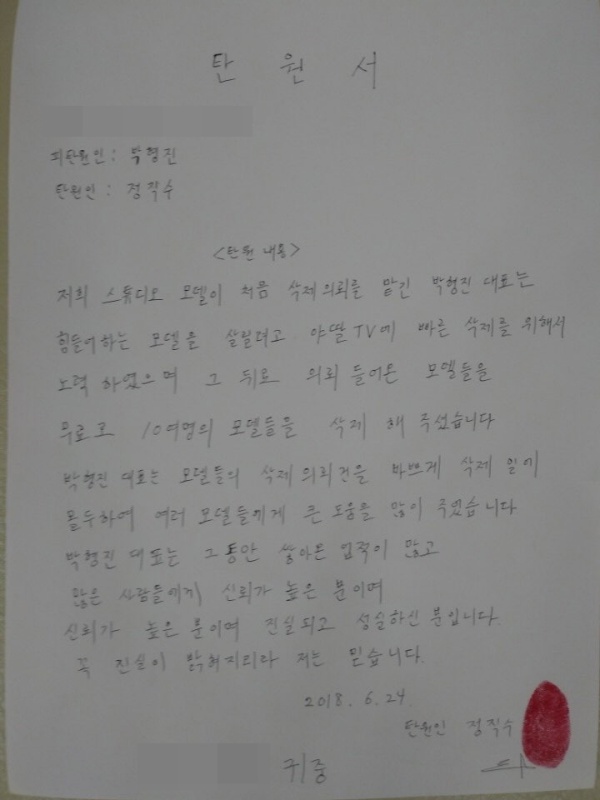 탄 원 서
피탄원인 : 박형진
탄원인 : 정직수
<탄원 내용>
저희 스튜디오 모델이 처음 삭제의뢰를 맡긴 박형진 대표는
힘들어하는 모델을 살릴려고 야딸TV에 빠른 삭제를 위해서
노력 하였으며 그 뒤로 의뢰 들어온 모델들을
무료로 10여명의 모델들을 삭제 해 주셨습니다
박형진 대표는 모델들의 삭제 의뢰건을 바쁘게 삭제 일에
몰두하여 여러 모델들에게 큰 도움을 많이 주었습니다
박형진 대표는 그동안 쌓아온 업적이 많고
많은 사람들에게 신뢰가 높은 분이며
신뢰가 높은 분이며 진실되고 성실하신 분입니다.
꼭 진실이 밝혀지리라 저는 믿습니다.
2018. 6. 24.
탄원인 정직수
귀중